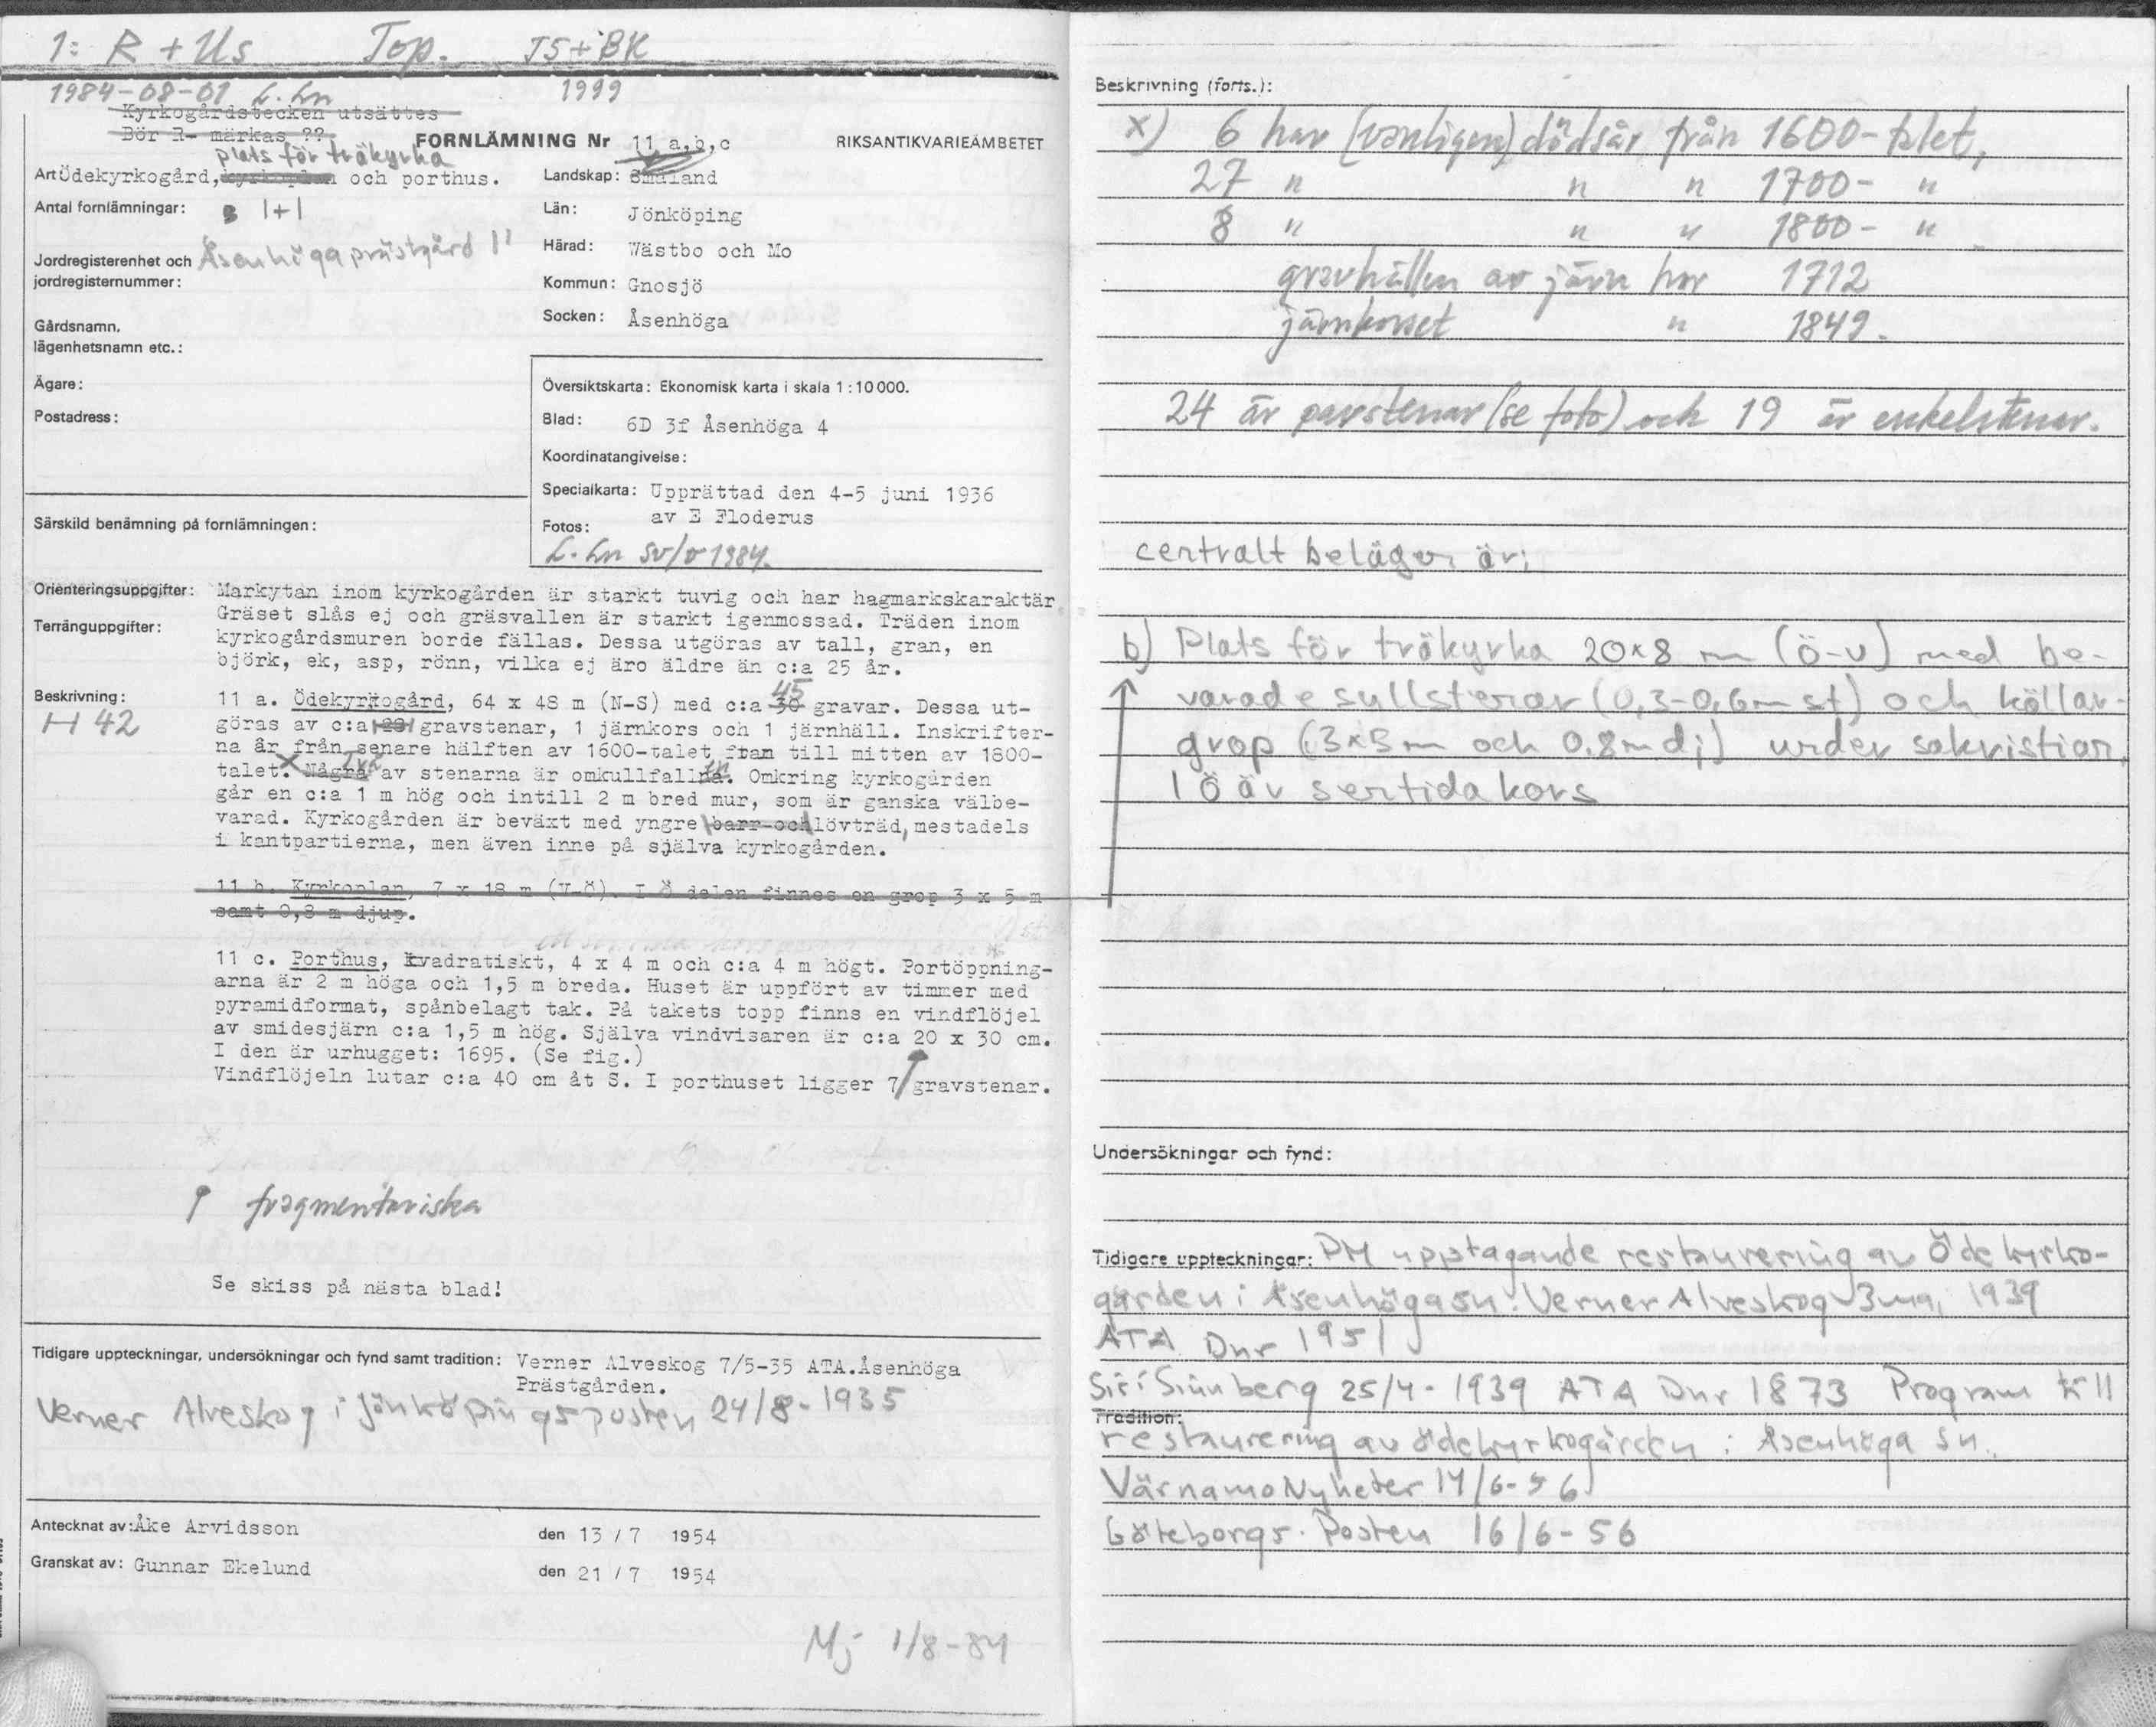 1: R + Us Top. JS+BK
1984-08-01 L. Ln 1999
Kyrkogårdstecken utsättes
Bör R- märkas ??
FORNLÄMNING Nr 11 a,b,c RIKSANTIKVARIEÄMBETET
plats för träkyrka
Art Ödekyrkogård, kyrkoplan och porthus.
Landskap: Småland
Antal fornlämningar: 3 1+1
Län: Jönköping
Jordregisterenhet och jordregisternummer: Åsenhöga prästgård 1¹
Härad: Wästbo och Mo
Kommun: Gnosjö
Socken: Åsenhöga
Gårdsnamn,
lägenhetsnamn etc.:
Ägare:
Postadress:
Översiktskarta: Ekonomisk karta i skala 1:10000.
Blad: 6D 3f Åsenhöga 4
Koordinatangivelse:
Specialkarta: Upprättad den 4-5 juni 1936
av E Floderus
Fotos:
L. Ln sv/v 1984.
Särskild benämning på fornlämningen:
Orienteringsuppgifter: Markytan inom kyrkogården är starkt tuvig och har hagmarkskaraktär
Gräset slås ej och gräsvallen är starkt igenmossad. Träden inom
Terränguppgifter: kyrkogårdsmuren borde fällas. Dessa utgöras av tall, gran, en
björk, ek, asp, rönn, vilka ej äro äldre än c:a 25 år.
Beskrivning:
H 42
45
11 a. Ödekyrkogård, 64 x 48 m (N-S) med c:a 30 gravar. Dessa ut-
göras av c:a 29 gravstenar, 1 järnkors och 1 järnhäll. Inskrifter-
na är från senare hälften av 1600-talet fram till mitten av 1800-
talet. x Några av stenarna är omkullfallna. Omkring kyrkogården
går en c:a 1 m hög och intill 2 m bred mur, som är ganska välbe-
varad. Kyrkogården är beväxt med yngre barr-och lövträd, mestadels
i kantpartierna, men även inne på själva kyrkogården.
11 b. Kyrkoplan, 7 x 18 m (V-Ö). I Ö delen finnes en grop 3 x 5 m
samt 0,8 m djup.
11 c. Porthus, kvadratiskt, 4 x 4 m och c:a 4 m högt. Portöppning-
arna är 2 m höga och 1,5 m breda. Huset är uppfört av timmer med
pyramidformat, spånbelagt tak. På takets topp finns en vindflöjel
av smidesjärn c:a 1,5 m hög. Själva vindvisaren är c:a 20 x 30 cm.
I den är urhugget: 1695. (Se fig.)
Vindflöjeln lutar c:a 40 cm åt S. I porthuset ligger 7 gravstenar.
fragmentariska
Se skiss på nästa blad!
Tidigare uppteckningar, undersökningar och fynd samt tradition: Verner Alveskog 7/5-35 ATA.Åsenhöga
Prästgården.
Verner Alveskog i Jönköpingsposten 24/8-1935
Antecknat av: Åke Arvidsson den 13 / 7 1954
Granskat av: Gunnar Ekelund den 21 / 7 1954
Mj 1/8-84
Beskrivning (forts.):
x) 6 har (vanligen) dödsår från 1600-talet,
27 " " " 1700- "
8 " " " 1800- "
gravhällen av järn har 1712
järnkorset " 1849.
24 är parstenar (se foto) och 19 är enkelstenar.
centralt belägen är;
b) Plats för träkyrka 20x8 m (ö-v) med be-
varade syllstenar (0,3-0,6 m st) och källar-
grop (3x5 m och 0.8 m dj) under sakristian,
I Ö är sentida kors
Undersökningar och fynd:
Tidigare uppteckningar: PM upptagande restaurering av Ödekyrko-
gården i Åsenhöga sn. Verner Alveskog 3 maj 1939
ATA Dnr 1951
Siri Sünberg 25/4-1939 ATA Dnr 1873 Program till
Tradition:
restaurering av ödekyrkogården i Åsenhöga sn.
Värnamo Nyheter 14/6-56
Göteborgs-Posten 16/6-56